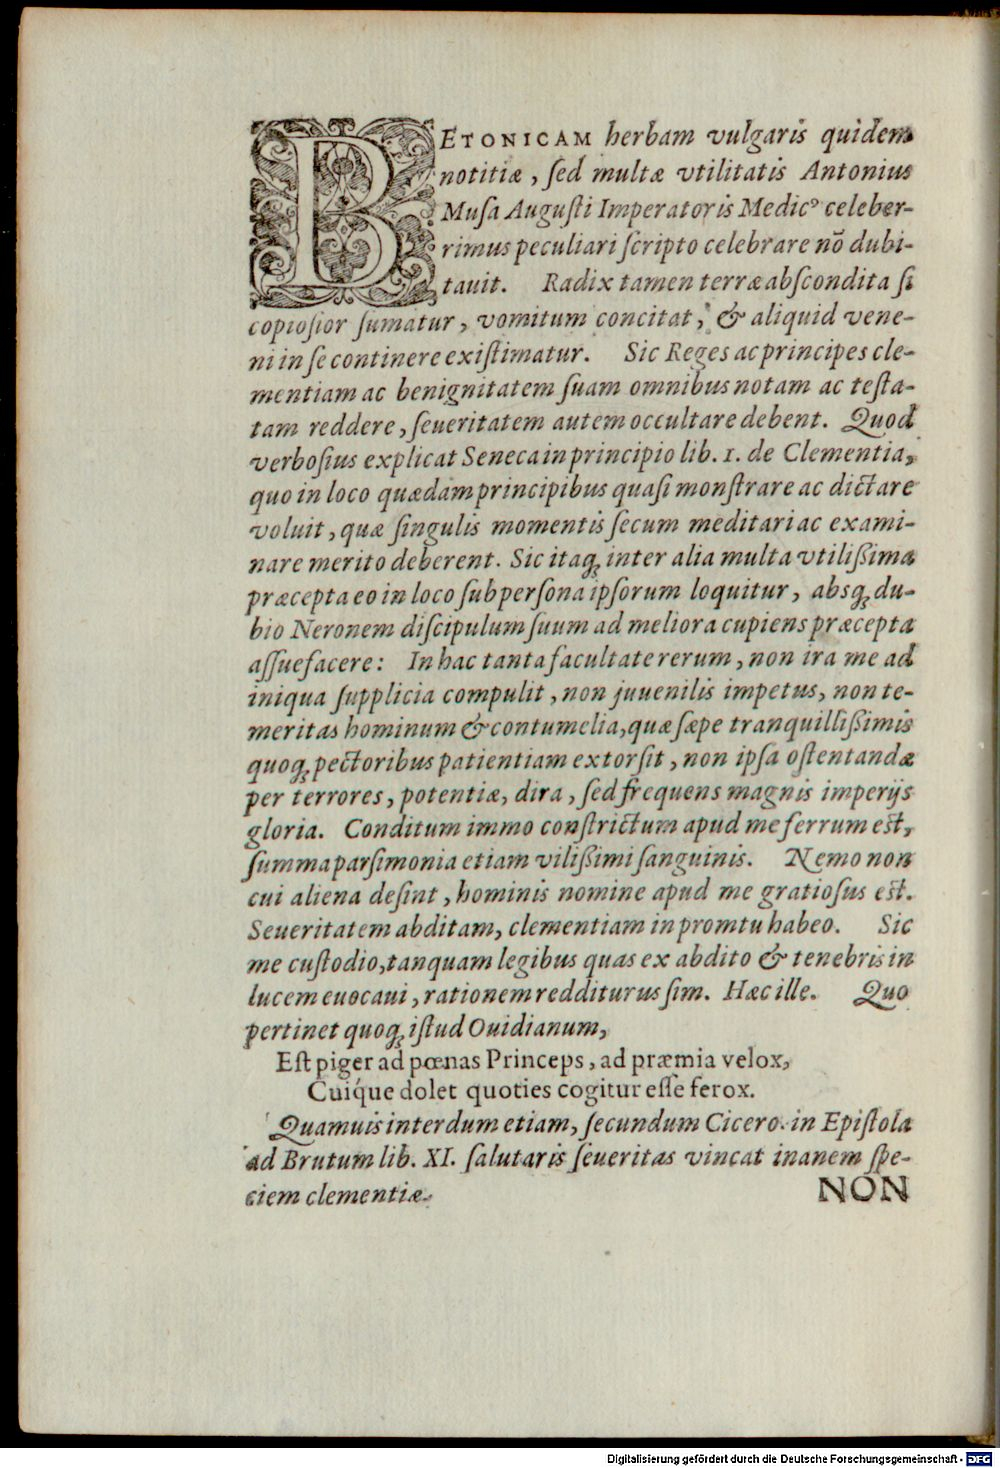 BETONICAM herbam vulgaris quidem
notitiæ, ſed multæ vtilitatis Antonius
Muſa Auguſti Imperatoris Medicꝰ celeber-
rimus peculiari ſcripto celebrare nõ dubi-
tauit. Radix tamen terræ abſcondita ſi
copioſior ſumatur, vomitum concitat, & aliquid vene-
ni in ſe continere exiſtimatur. Sic Reges ac principes cle-
mentiam ac benignitatem ſuam omnibus notam ac teſta-
tam reddere, ſeueritatem autem occultare debent. Quod
verboſius explicat Seneca in principio lib. 1. de Clementia,
quo in loco quædam principibus quaſi monſtrare ac dictare
voluit, quæ ſingulis momentis ſecum meditari ac exami-
nare merito deberent. Sic itaq; inter alia multa vtilißima
præcepta eo in loco ſub perſona ipſorum loquitur, absq; du-
bio Neronem diſcipulum ſuum ad meliora cupiens præcepta
aſſuefacere: In hac tanta facultate rerum, non ira me ad
iniqua ſupplicia compulit, non juuenilis impetus, non te-
meritas hominum & contumelia, quæ ſæpe tranquillißimis
quoq; pectoribus patientiam extorſit, non ipſa oſtentandæ
per terrores, potentiæ, dira, ſed frequens magnis imperijs
gloria. Conditum immo conſtrictum apud me ferrum est,
ſumma parſimonia etiam vilißimi ſanguinis. Nemo non
cui aliena deſint, hominis nomine apud me gratioſus est.
Seueritatem abditam, clementiam in promtu habeo. Sic
me cuſtodio, tanquam legibus quas ex abdito & tenebris in
lucem euocaui, rationem redditurus ſim. Hæc ille. Quo
pertinet quoq; iſtud Ouidianum,
Eſt piger ad pœnas Princeps, ad præmia velox,
Cuíque dolet quoties cogitur eſſe ferox.
Quamuis interdum etiam, ſecundum Cicero. in Epiſtola
ad Brutum lib. XI. ſalutaris ſeueritas vincat inanem ſpe-
ciem clementiæ.
NON
Digitalisierung gefördert durch die Deutsche Forschungsgemeinschaft - DFG